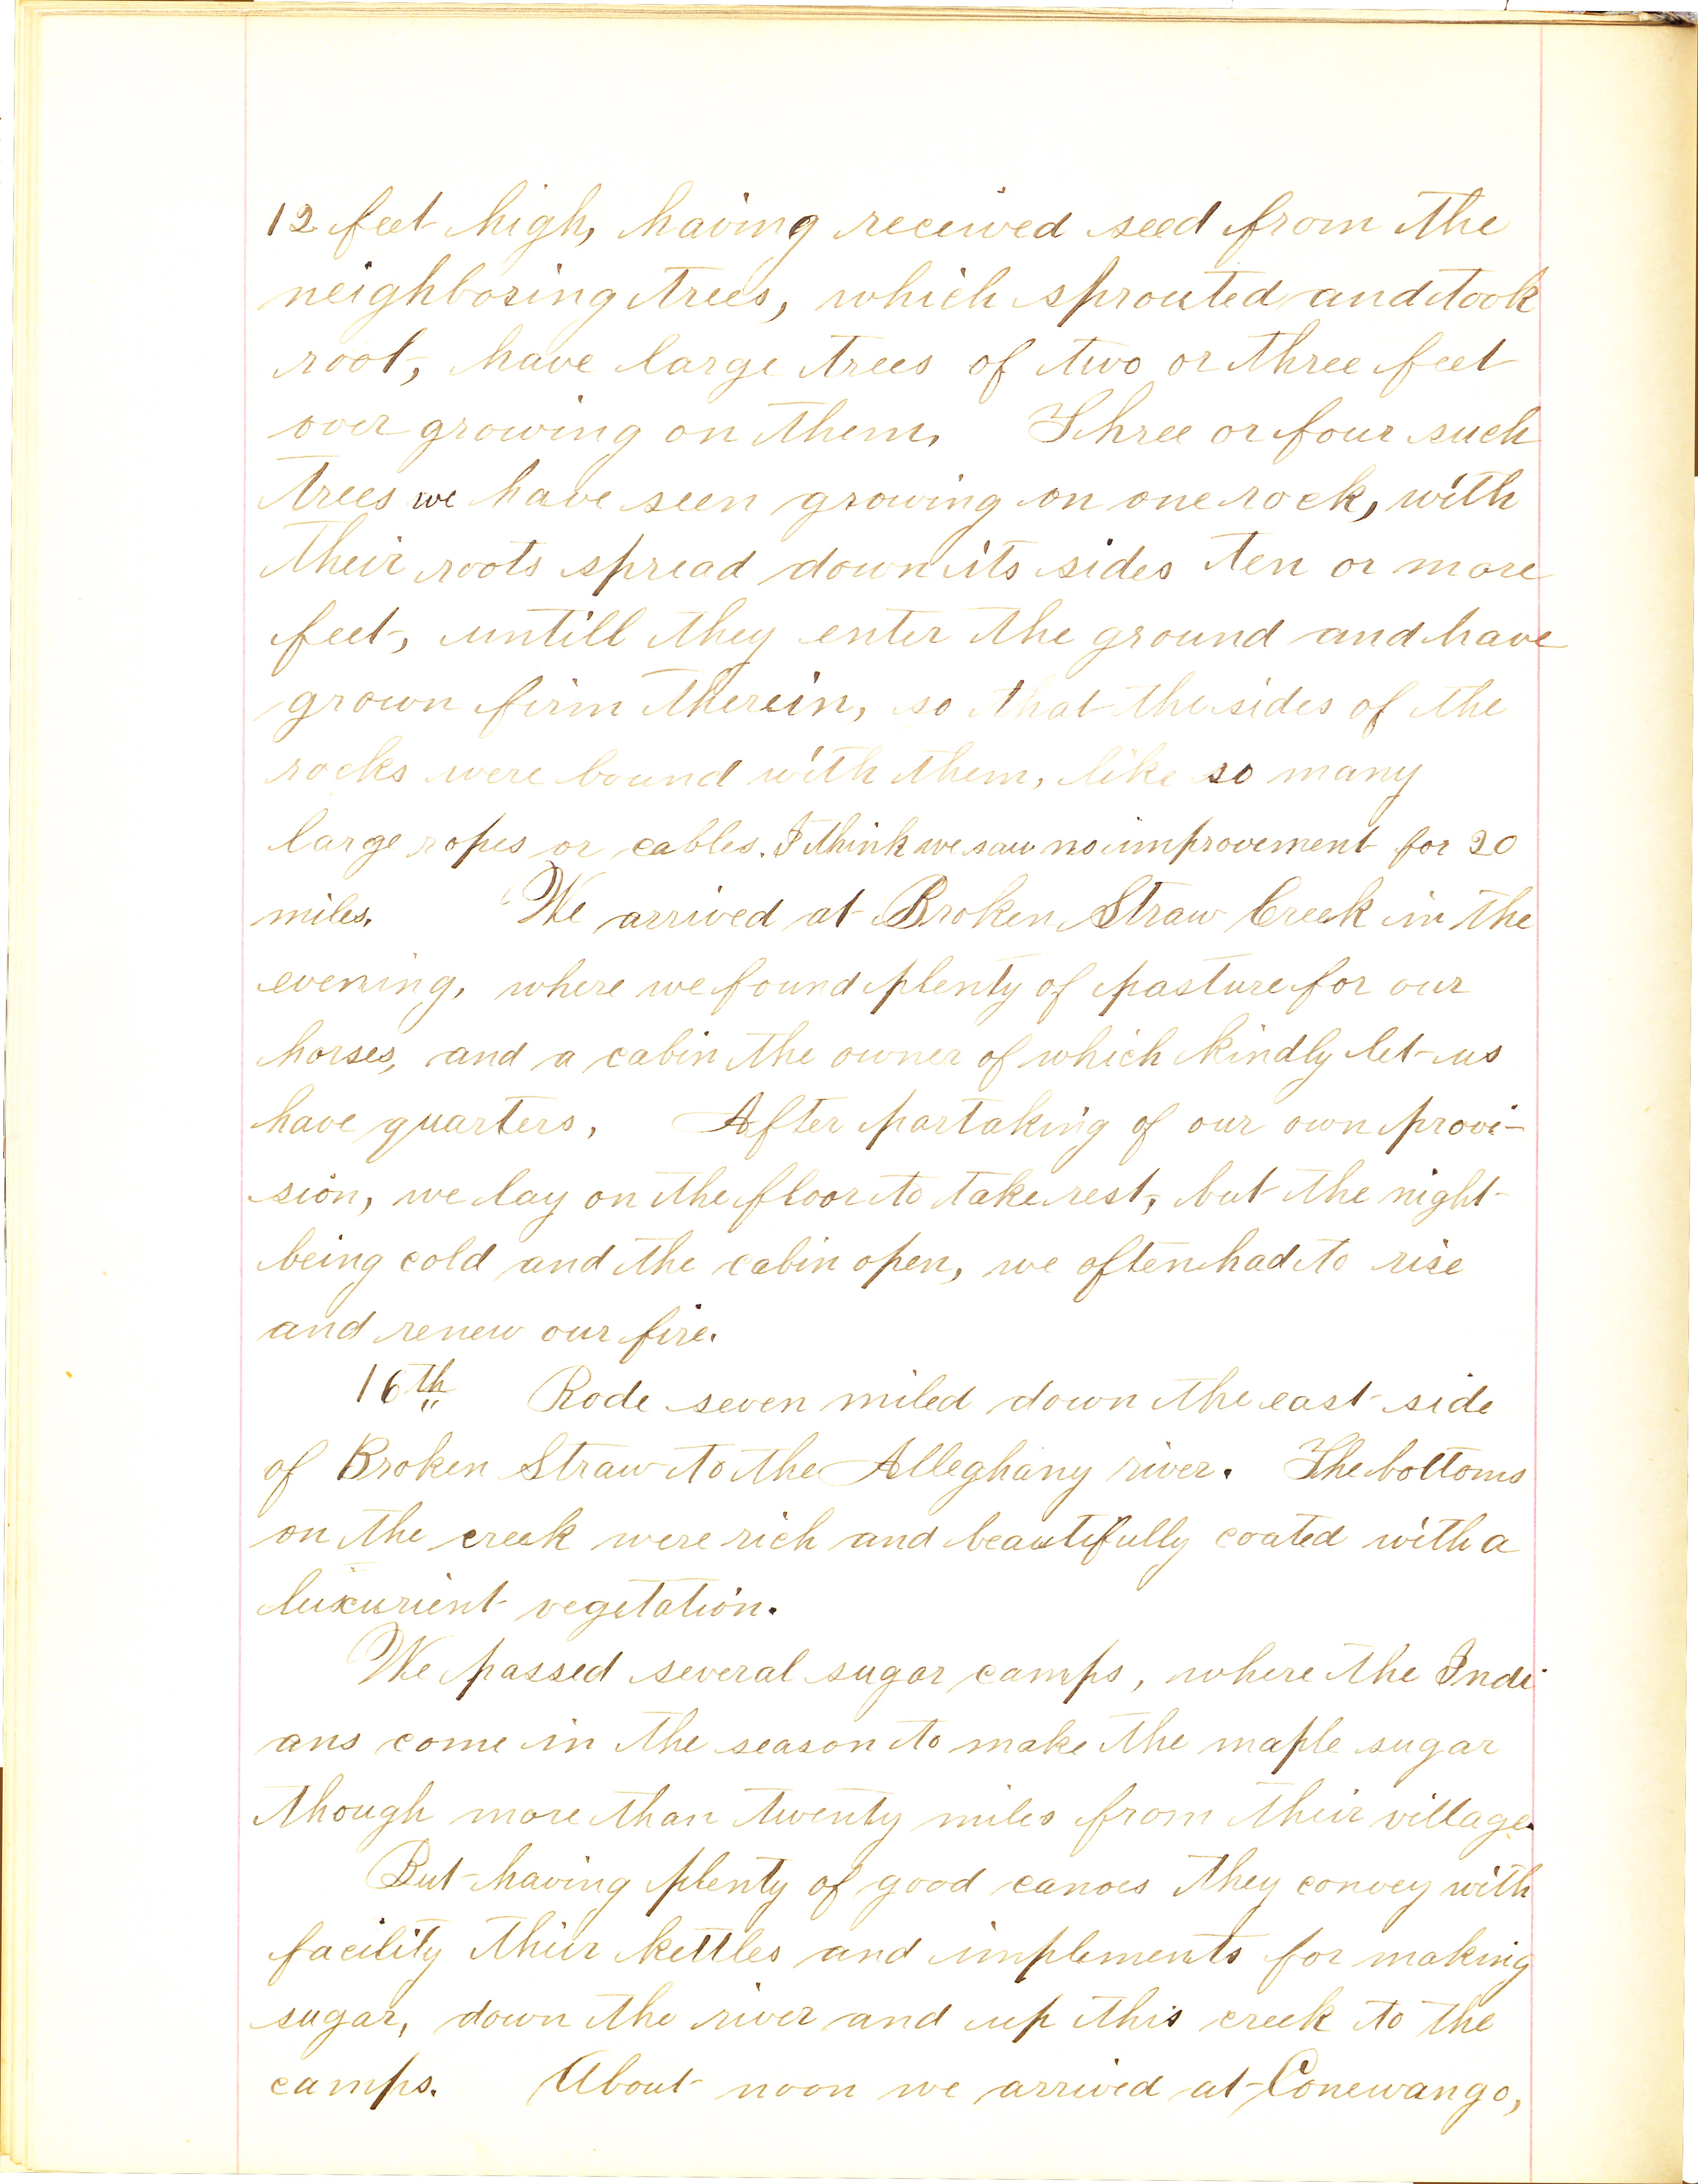 12 feet high, having received seed from the
neighboring trees, which sprouted and took
root, have large trees of two or three feet
over growing on them. Three or four such
trees we have seen growing on one rock, with
their roots spread down its sides ten or more
feet, untill they enter the ground and have
grown firm therein, so that the sides of the
rocks were bound with them, like so many
large ropes or cables. I think we saw no improvement for 20
miles. We arrived at Broken Straw Creek in the
evening, where we found plenty of pasture for our
horses, and a cabin the owner of which kindly let us
have quarters. After partaking of our own provi-
sion, we lay on the floor to take rest, but the night
being cold and the cabin open, we often had to rise
and renew our fire.
16th Rode seven miled down the east side
of Broken Straw to the Alleghany river. The bottoms
on the creek were rich and beautifully coated with a
luxurient vegetation.
We passed several sugar camps, where the Indi
ans come in the season to make the maple sugar
though more than twenty miles from their village.
But having plenty of good canoes they convey with
facility their kettles and implements for making
sugar, down the river and up this creek to the
camps. About noon we arrived at Conewango,